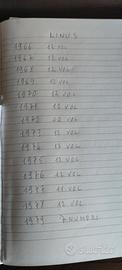 LINUS
1966 12 VOL
1967 12 VOL
1968 12 VOL
1969 12 VOL
1970 12 VOL
1971 12 VOL
1972 12 VOL
1973 12 VOL
1974 12 VOL
1975 12 VOL
1976 12 VOL
1977 11 VOL
1978 12 VOL
1979 7 NUMERI
subito